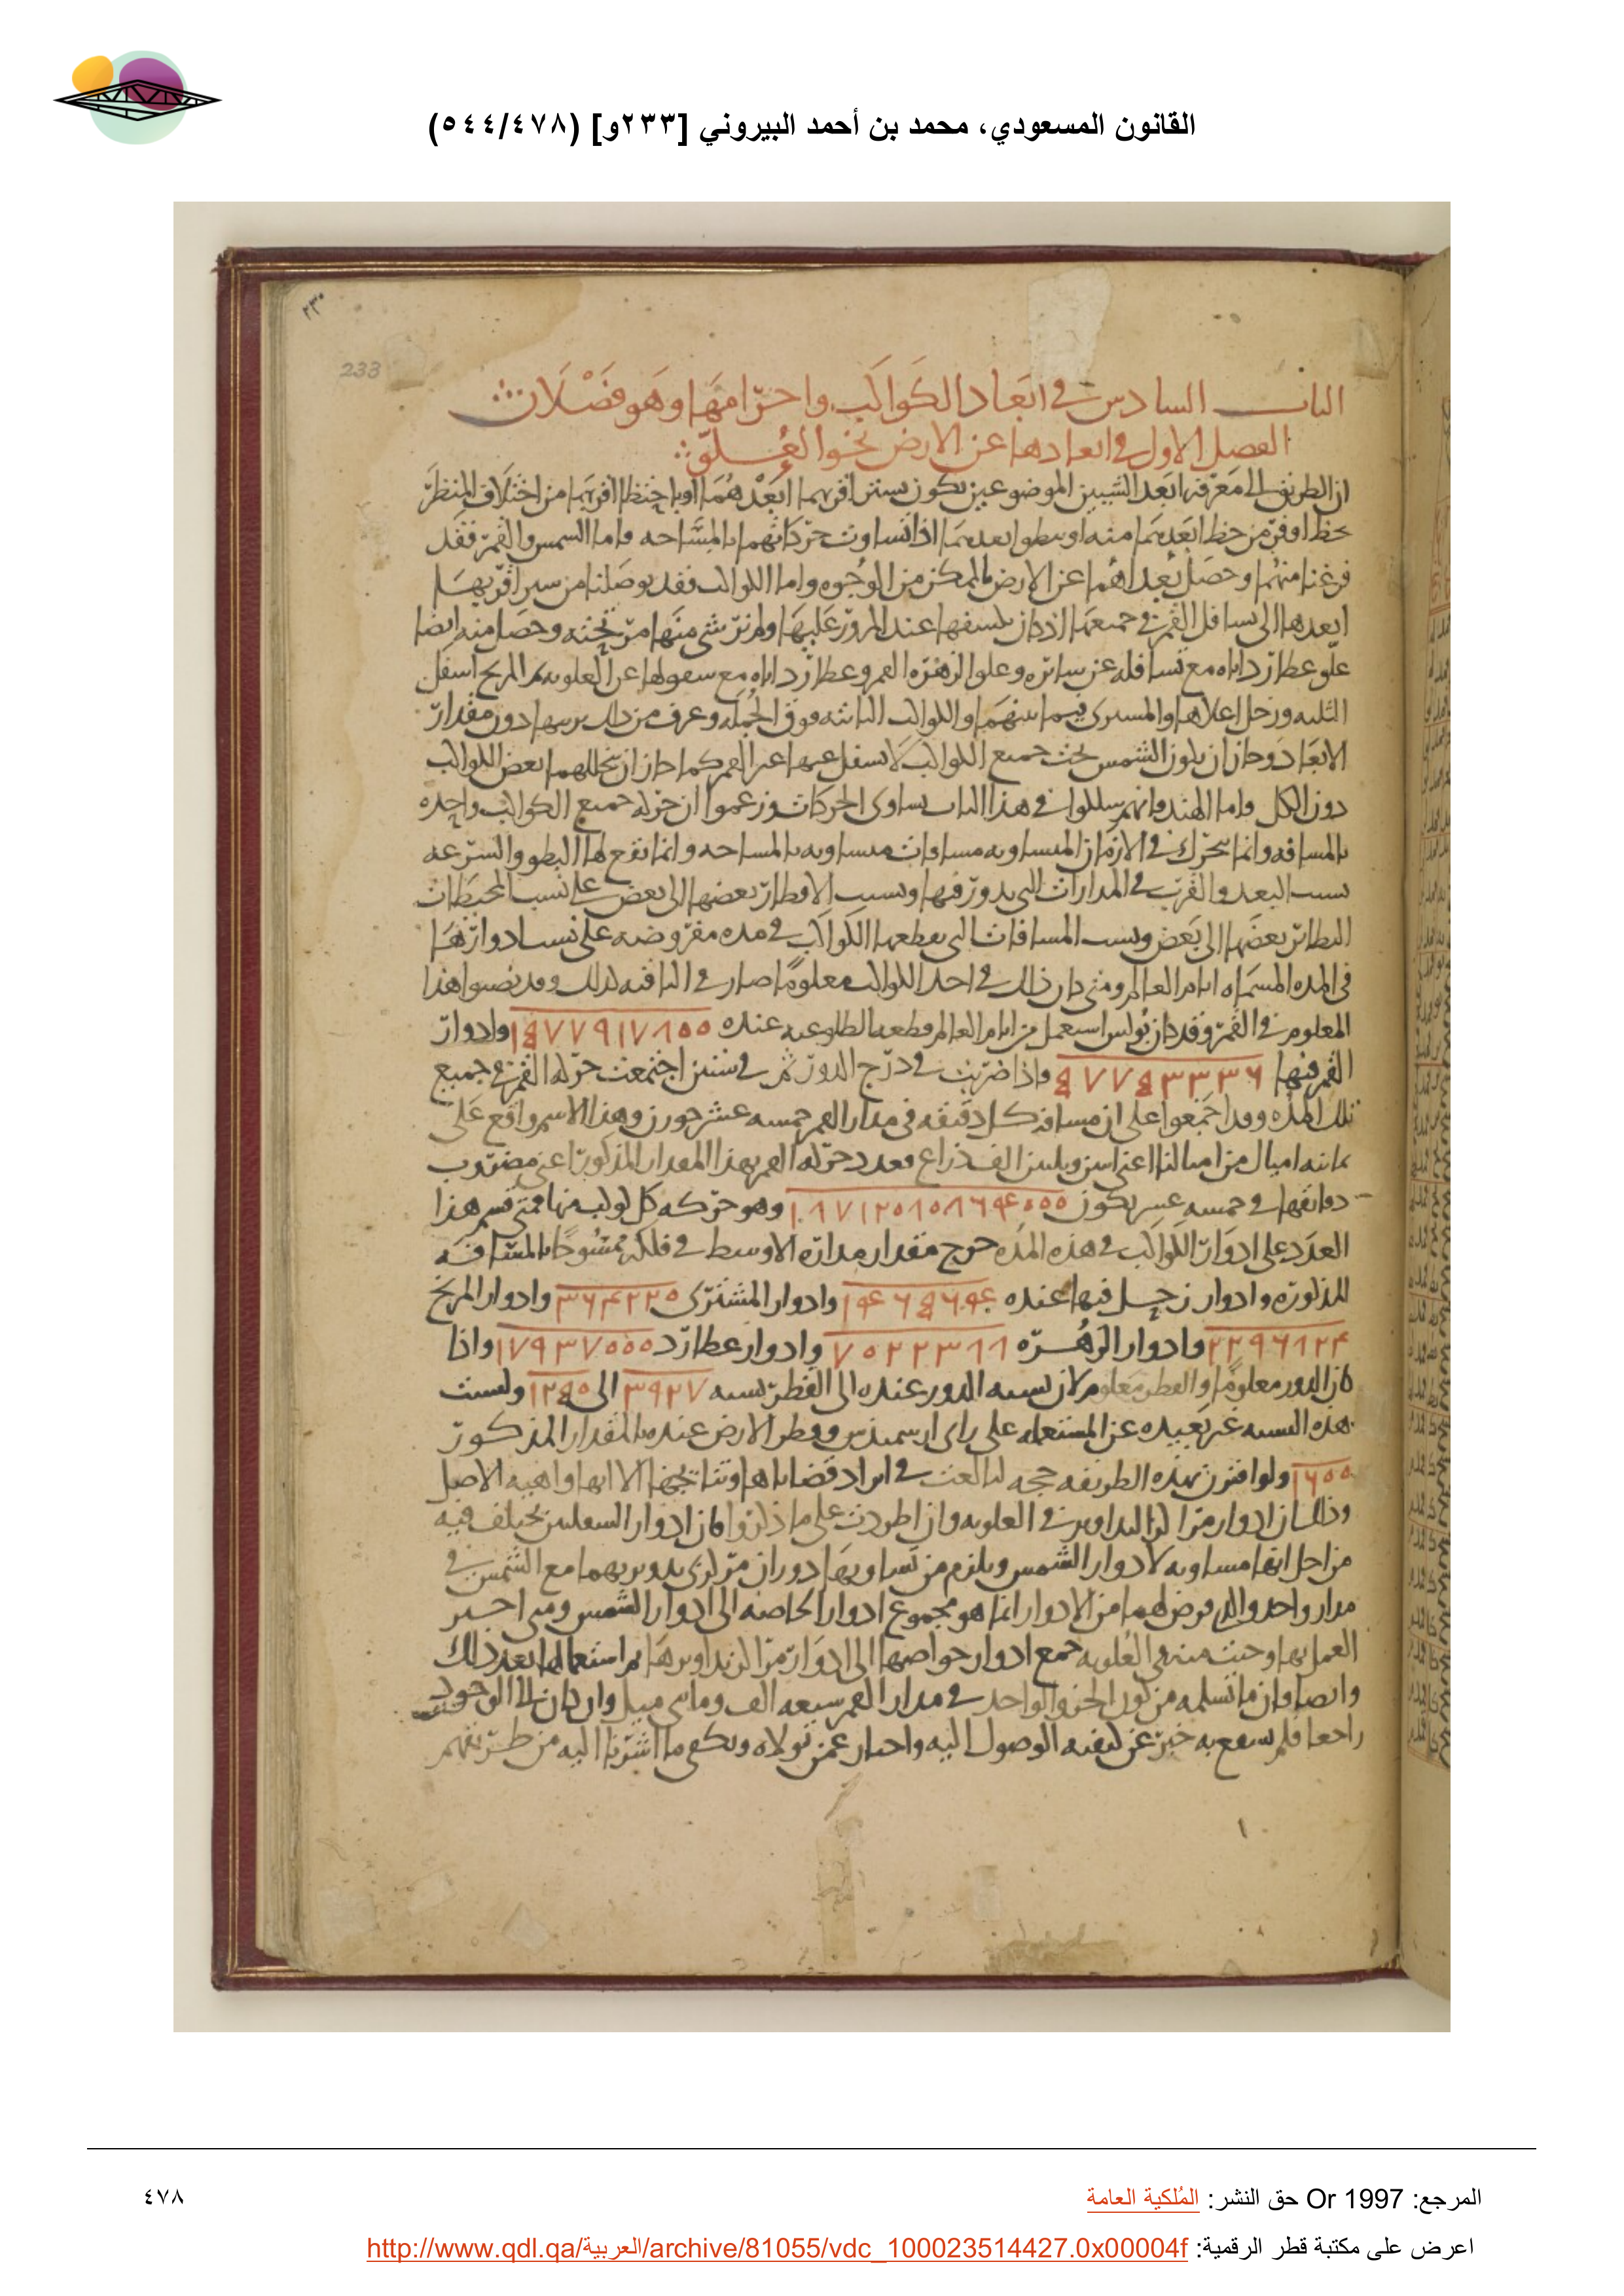 القانون المسعودي، محمد بن أحمد البيروني [٢٣٣و] (٥٤٤/٤٧٨)
٢٣٠
233
الباب السادس في ابعاد الكواكب واجرامها وهو فصلان
الفصل الاول في ابعادها عن الارض نحو العلو
ان الطريق الى معرفة ابعد الشيين الموضوعين يكون بستر اقربهما ابعدهما او باحتظا اقربهما من اختلاف المنظر
حظا اوفر من حظ ابعدهما منه او ببطو ابعدهما اذا تساوت حركاتهما بالمساحه واما الشمس والقمر فقد
فرغنا منهما وحصل بعداهما عن الارض بالممكن من الوجوه واما الكواكب فقد توصلنا من ستر اقربهما
ابعدها الى تسافل القمر في جميعها اذ كان يكسفها عند المرور عليها ولم نر شي منها مر تحته وحصل منه ايضا
علو عطارد اياه مع تسافله عن سائره وعلو الزهره القمر وعطارد اياه مع سفولها عن العلويه ثم المريخ اسفل
الثلثه وزحل اعلاها والمشترى فيما بينهما والكواكب الثابته فوق الجمله وعرف من ذلك ترتيبها دون مقدار
الابعاد وجاز ان يكون الشمس تحت جميع الكواكب لا تسفل عنها غير القمر كما جاز ان يتخللهما بعض الكواكب
دون الكل واما الهند فانهم سلكوا في هذا الباب تساوى الحركات وزعموا ان حركه جميع الكواكب واحده
بالمسافه وانما تتحرك في الازمان المتساويه مسافات متساويه بالمساحه وانما تقع لها البطو والسرعه
بسبب البعد والقرب في المدارات التي يدور فيها ونسب الاقطار بعضها الى بعض على نسب المحيطات
النظائر بعضها الى بعض ونسب المسافات التي يقطعها الكواكب في مده مفروضه على نسب ادوارها
في المده المسماه ايام العالم ومتى كان ذلك في احد الكواكب معلوما صار في الباقيه كذلك وقد نصبوا هذا
المعلوم في القمر وقد كان بولس استعمل من ايام العالم قطعه الطلوعيه عنده ١٥٧٧٩١٧٨٠٠ وادوار
القمر فيها ٥٧٧٥٣٣٣٦ واذا ضربت في درج الدور ثم في ستين اجتمعت حركه القمر في جميع
تلك المده وقد اجمعوا على ان مسافه كل دقيقه في مدار القمر خمسه عشر جوزن وهذا الاسم واقع على
ثمانيه اميال من اميالنا اعني اثنين وثلثين الف ذراع فعدد حركه القمر بهذا المقدار المذكور اعني مضروب
دقائقها في خمسه عشر يكون ١٨٧١٢٠٨٠٨٦٤٠٠٠ وهو حركه كل كوكب منها فمتى قسم هذا
العدد على ادوار الكواكب في هذه المده خرج مقدار مداره الاوسط في فلكه ممسوحا بالمسافه
المذكوره وادوار زحل فيها عنده ١٤٦٥٦٤ وادوار المشترى ٣٦٤٢٢٠ وادوار المريخ
٢٢٩٦٨٢٤ وادوار الزهره ٧٠٢٢٣٨٨ وادوار عطارد ١٧٩٣٧٠٠٠ واذا
كان الدور معلوما والقطر معلوم لان نسبه الدور عنده الى القطر نسبه ٣٩٢٧ الى ١٢٥٠ وليست
هذه النسبه غير بعيده عن المستعمله على راى ارسميدس وقطر الارض عنده بالمقدار المذكور
١٦٠٠ ولو اقترن بهذه الطريقه حجه لبالغت في ايراد قضاياها ونتائجها الا انها واهيه الاصل
وذلك ان ادوار مراكز التداوير في العلويه وان اطردت على ما ذكروا فان ادوار السفليين يختلف فيه
من اجل انها مساويه لادوار الشمس ويلزم من تساويها دوران مركزى تدويريهما مع الشمس في
مدار واحد والذي فرض لهما من الادوار انما هو مجموع ادوار الخاصه الى ادوار الشمس ومتى اجيز
العمل بها وجبت منه في العلويه جمع ادوار خواصها الى ادوار مراكز تداويرها ثم استعمالها بعد ذلك
وايضا فان ما تسلمه من كون الجزو الواحد في مدار القمر سبعه الف ومائتى ميل وان كان الى الوجود
راجعا فلم يقع به خبر عن كيفيه الوصول اليه واختار عمن تولاه ويكفى ما اشرنا اليه من طريقهم
المرجع: Or 1997 حق النشر: المُلكية العامة
٤٧٨
اعرض على مكتبة قطر الرقمية: http://www.qdl.qa/العربية/archive/81055/vdc_100023514427.0x00004f